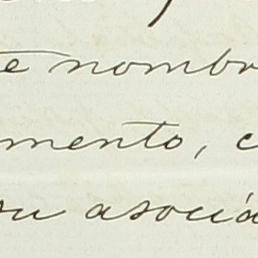 te nombr
mento, c
su asociá